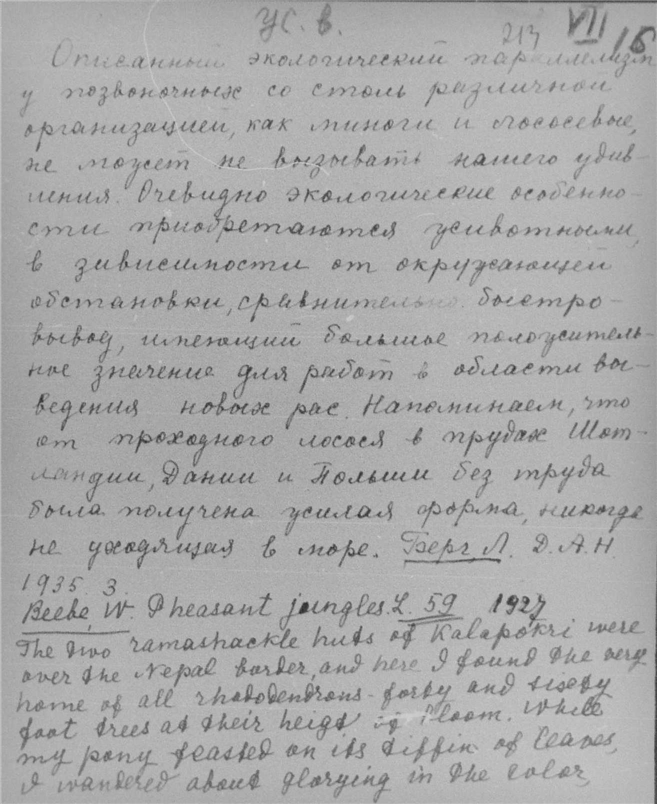 ус. в.
213 VII 15
Описанный экологический параллелизм
у позвоночных со столь различной
организацией, как миноги и лососевые,
не может не вызывать нашего удив-
ления. Очевидно экологические особенно-
сти приобретаются животными,
в зависимости от окружающей
обстановки, сравнительно быстро-
вывод, имеющий большое положитель-
ное значение для работ в области вы-
ведения новых рас. Напоминаем, что
от проходного лосося в прудах Шот-
ландии, Дании и Польши без труда
была получена жилая форма, никогда
не уходящая в море. Берг Л. Д.А.Н.
1935. 3.
Beebe, W. Pheasant jungles. L. 59 1927
The two ramashackle huts of Kalapokri were
over the Nepal border, and here I found the very
home of all rhododendrons - forty and sixty
foot trees at their heigt of bloom. While
my pony feasted on its tiffin of leaves,
I wandered about glorying in the color,